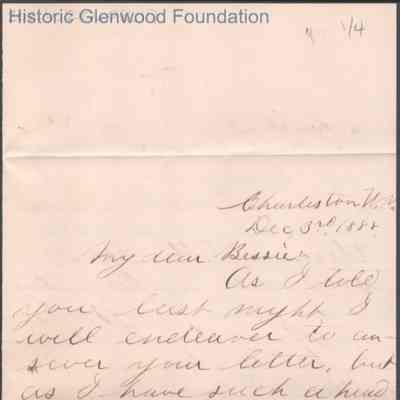 Historic Glenwood Foundation
1/4
Charleston W.Va
Dec 3rd, 1888
My dear Bessie,
As I told
you last night I
will endeaver to an-
swer your letter, but
as I have such a head